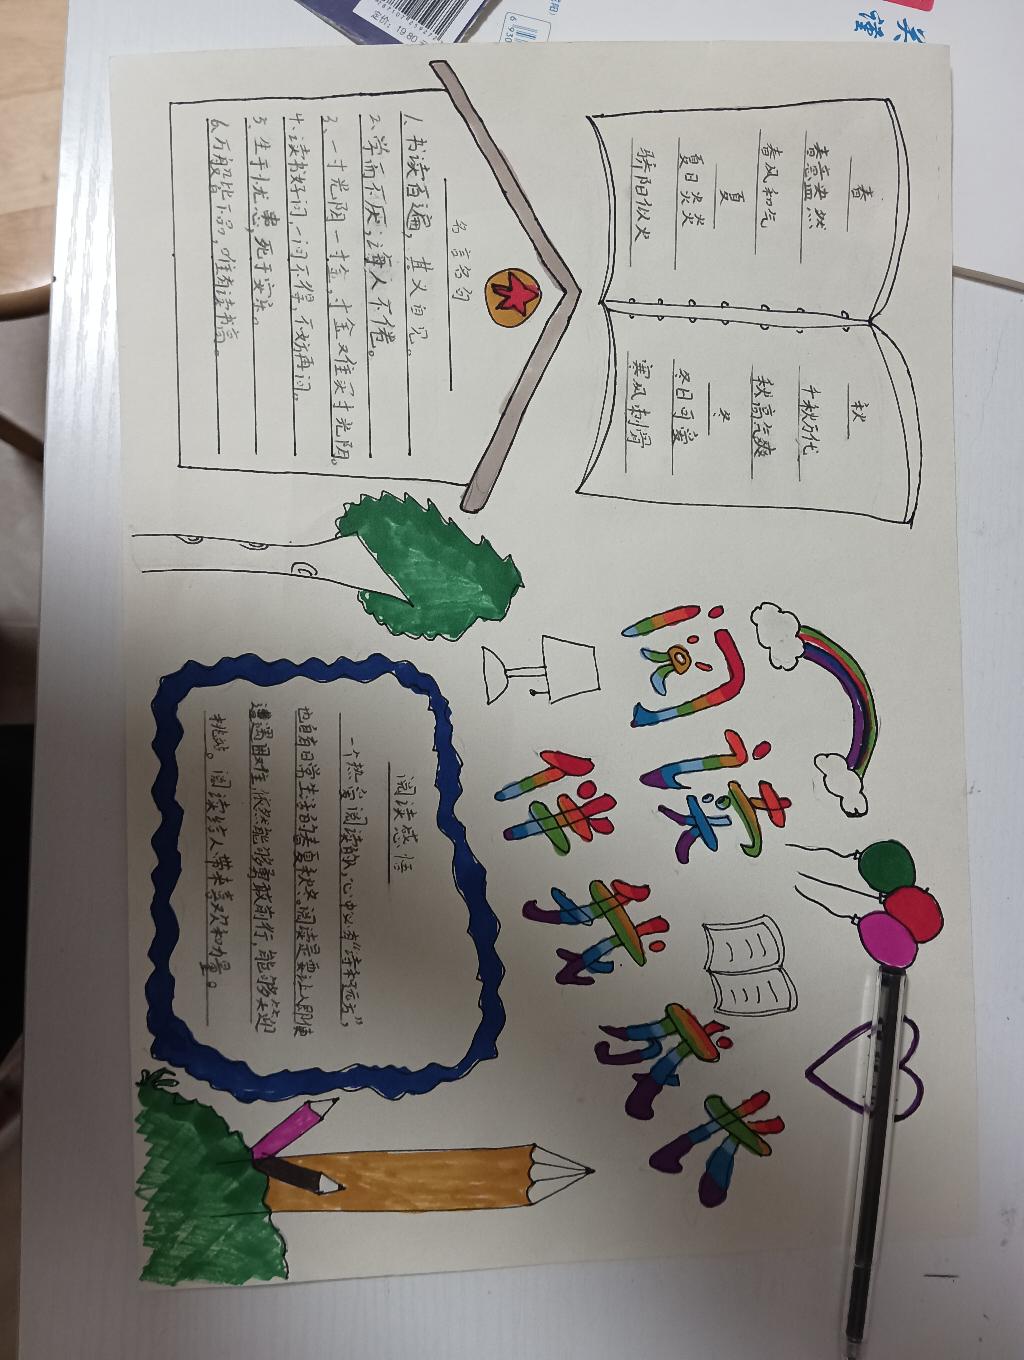 春
春意盎然
春风和气
夏
夏日炎炎
骄阳似火
秋
千秋万代
秋高气爽
冬
冬日可爱
寒风刺骨
阅读
伴我成长
名言名句
1、书读百遍，其义自见。
2、学而不厌，诲人不倦。
3、一寸光阴一寸金，寸金难买寸光阴。
4、读书好问，一问不得，不妨再问。
5、生于忧患，死于安乐。
6、万般皆下品，惟有读书高。
阅读感悟
一个热爱阅读的人，心中必有“诗和远方”，
也自有日常生活的春夏秋冬。阅读是要让人即使
遭遇困难依然能够勇敢前行，能够笑迎
挑战。阅读给人带来喜欢和力量。
定价：19.80